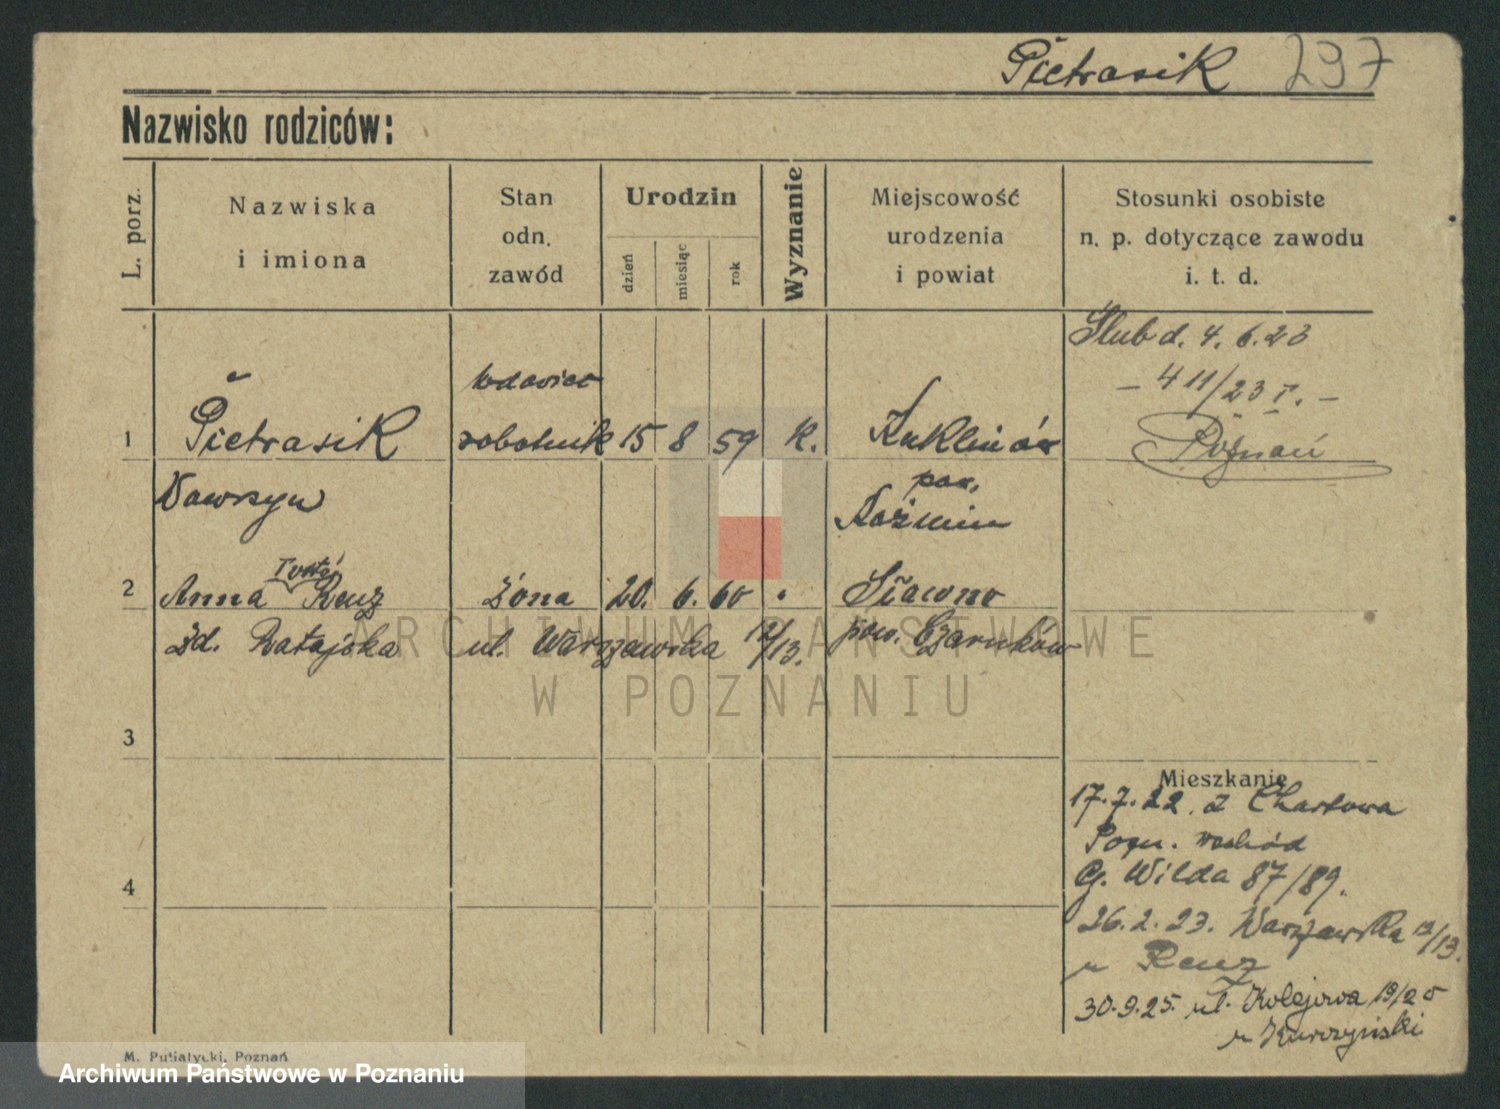 Pietrasik 297
Nazwisko rodziców:
L. porz.
Nazwiska
i imiona
Stan
odn.
zawód
Urodzin
dzień
miesiąc
rok
Wyznanie
Miejscowość
urodzenia
i powiat
Stosunki osobiste
n. p. dotyczące zawodu
i. t. d.
Ślub d. 4. 6. 23
- 411/23 I. -
Poznań
wdowiec
1 Pietrasik robotnik 15 8 59 k. Kuklinów
Wawrzyn pow.
Koźmin
2 Anna Renz żona 20. 6. 60 Sławno
zd. Ratajska ul. Warszawska 12/13. pow. Czarnków
ARCHIWUM PAŃSTWOWE
W POZNANIU
3
4
Mieszkanie
17.7.22. z Chartowa
Pozn. wschód
G. Wilda 87/89.
26.2.23. Warszawska 12/13.
u Renz
30.9.25. ul. Kolejowa 19/20
u
M. Putiatycki, Poznań
Archiwum Państwowe w Poznaniu